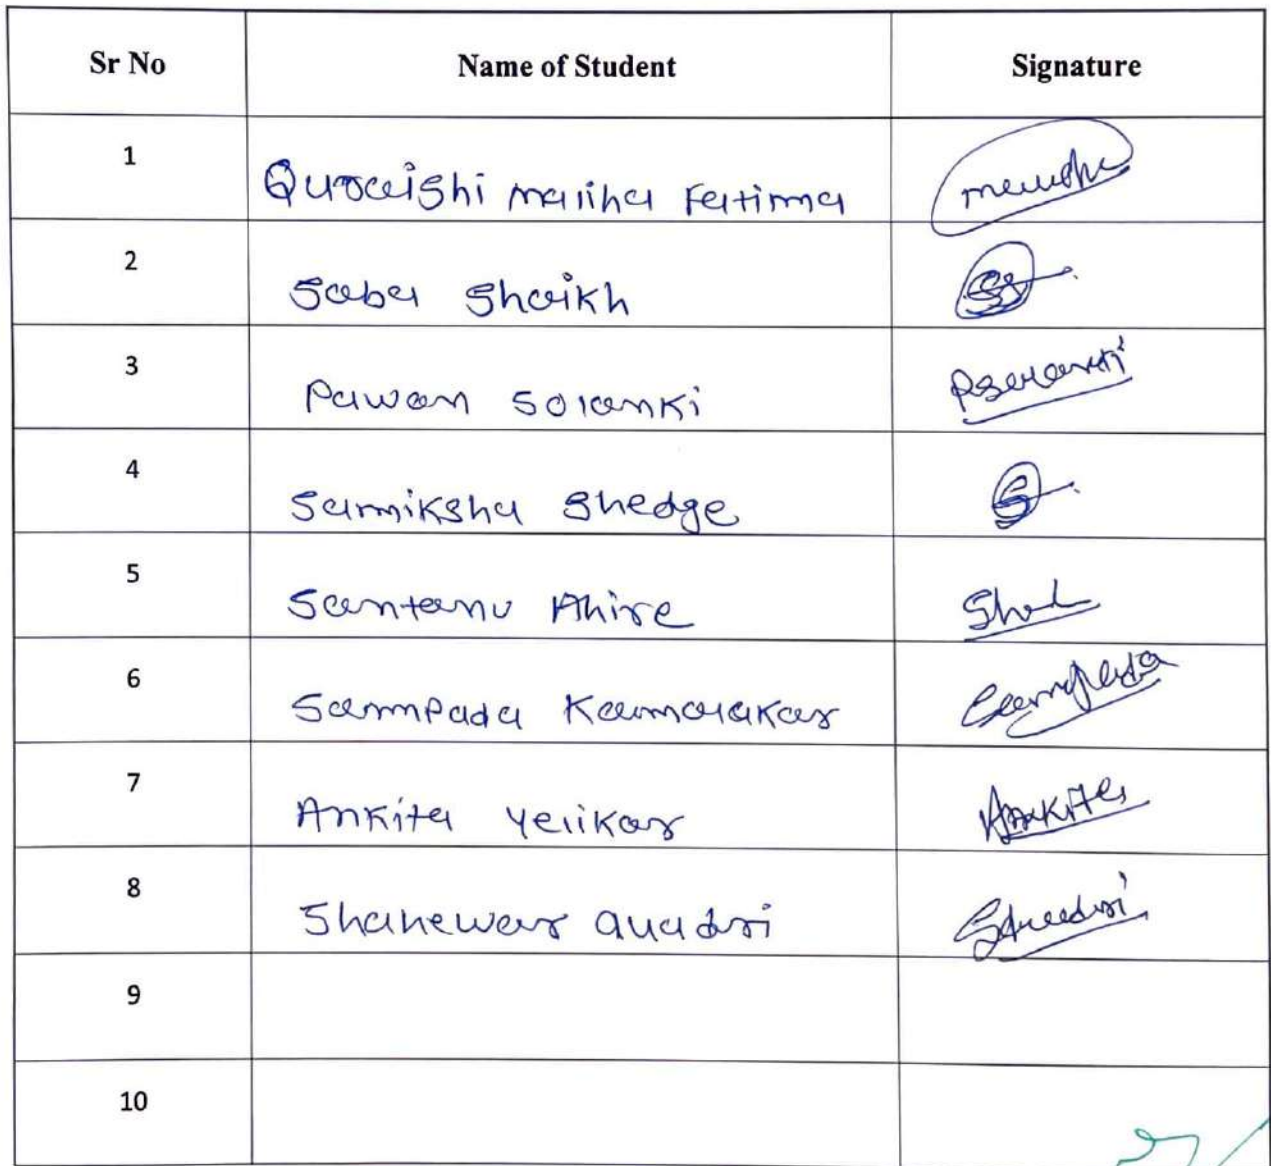 Sr No Name of Student Signature
1 Quraishi maliha Fatima
2 Saba Shaikh
3 Pawan Solanki PSolanki
4 Samiksha Shedge
5 Santanu Ahire
6 Sampada Kamalakar Sampada
7 Ankita Yelikar Ankita
8 Shahewar Quadri SQuadri
9
10